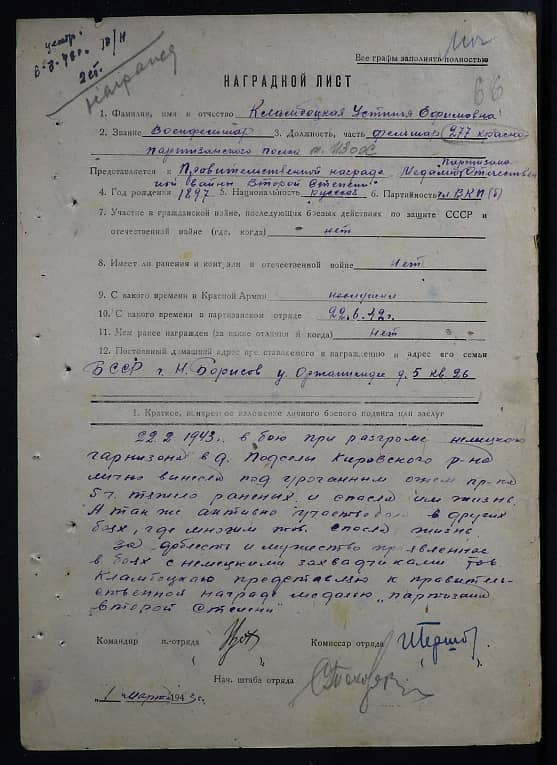 Все графы заполнять полностью
66
Награжд
НАГРАДНОЙ ЛИСТ
1. Фамилия, имя и отчество Кламбоцкая Устинья Ефимовна
2. Звание Военфельдшер 3. Должность, часть фельдшер 277 красно
партизанского полка
Представляется к Правительственной награде "Медалью Партизана Отечествен
ной Войны Второй Степени"
4. Год рождения 1897 5. Национальность русская 6. Партийность чл ВКП(б)
7. Участие в гражданской войне, последующих боевых действиях по защите СССР и
отечественной войне (где, когда) нет
8. Имеет ли ранения и контузии в отечественной войне Нет
9. С какого времени в Красной Армии неслужил
10. С какого времени в партизанском отряде 22.6.42г.
11. Чем ранее награжден (за какие отличия и когда) Нет
12. Постоянный домашний адрес представляемого к награждению и адрес его семьи
БССР г. Н. Борисов у. Орджаникидзе д. 5 кв. 26
1. Краткое, конкретное изложение личного боевого подвига или заслуг
22.2.1943г. в бою при разгроме немецкого
гарнизона в д. Подсели Кировского р-на
лично винесла под ураганним огнем пр-ка
5 т. тяжело раненых и спасла им жизнь.
А так же активно участвовала в других
боях, где многим тов. спасла жизнь.
За доблесть и мужество проявленное
в боях с немецкими захватчиками тов.
Кламбоцкаю представляю к правитель-
ственной награде медалью "партизана
второй Степени"
Командир п.-отряда
Комиссар отряда
Нач. штаба отряда
„1" марта 1943г.